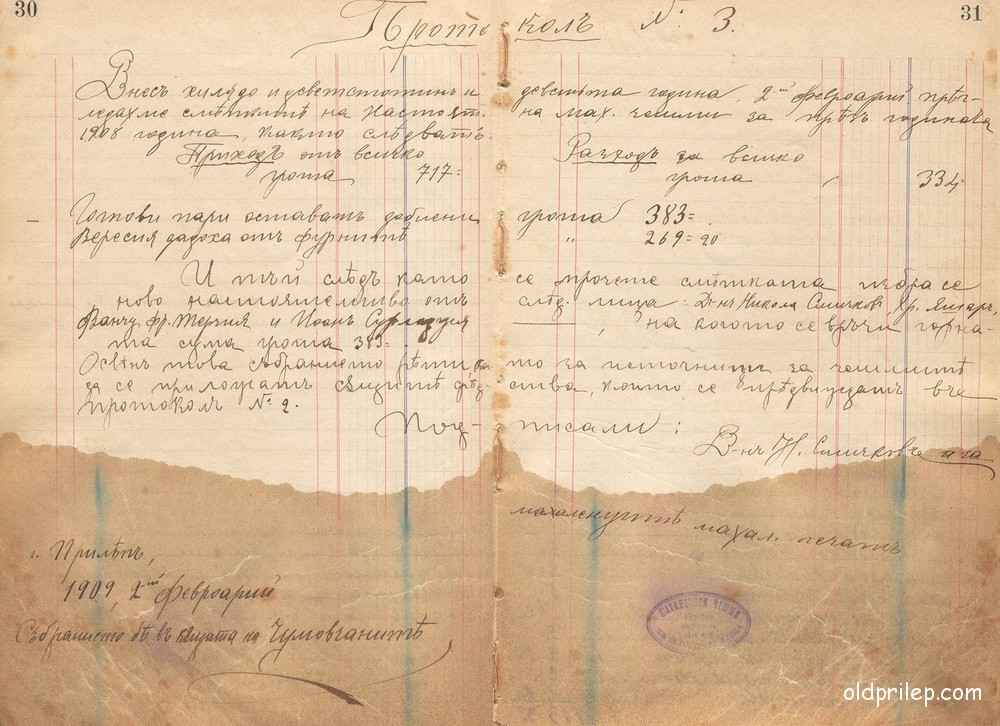 30 31
Протоколъ № 3.
Днесъ хилядо и деветстотинъ и деветата година, 2ий февруарий прѣг-
ледахме смѣткитѣ на настоят. на мах. чешми за прѣвъ година
1908 година, както слѣдватъ:
Приходъ отъ всичко Разходъ за всичко
гроша 717= гроша 334
— Готови пари оставатъ добиени гроша 383=
Вересия дадоха отъ фурнитѣ " 269= 20
И тъй слѣдъ като се прочете смѣтката избра се
ново настоятелство отъ слѣд. лица: Д-нъ Никола Смичковъ, Хр. Янгаръ,
Ванчу Терзия и Иоанъ , на когото се връчи горна-
та сума гроша 383=
Освѣнъ това събранието рѣши, за за чешмитѣ
да се приложатъ същитѣ срѣдства, които се прѣдвиждатъ въ
протоколъ № 2.
Подписали:
Д-нъ Н. Смичковъ
махал. печатъ
г. Прилѣпъ,
1909, 2ий февруарий
Събранието бѣ въ кѫщата на Чумовчанитѣ
ЧЕШМИ
oldprilep.com